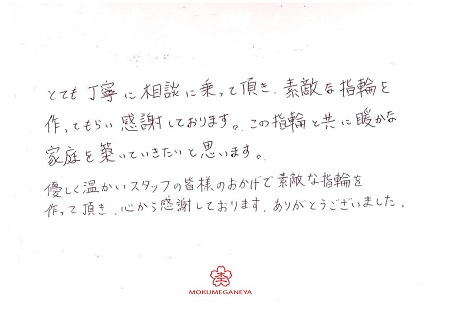 とても丁寧に相談に乗って頂き、素敵な指輪を
作ってもらい感謝しております。この指輪と共に暖かな
家庭を築いていきたいと思います。
優しく温かいスタッフの皆様のおかげで素敵な指輪を
作って頂き、心から感謝しております。ありがとうございました。
MOKUMEGANEYA